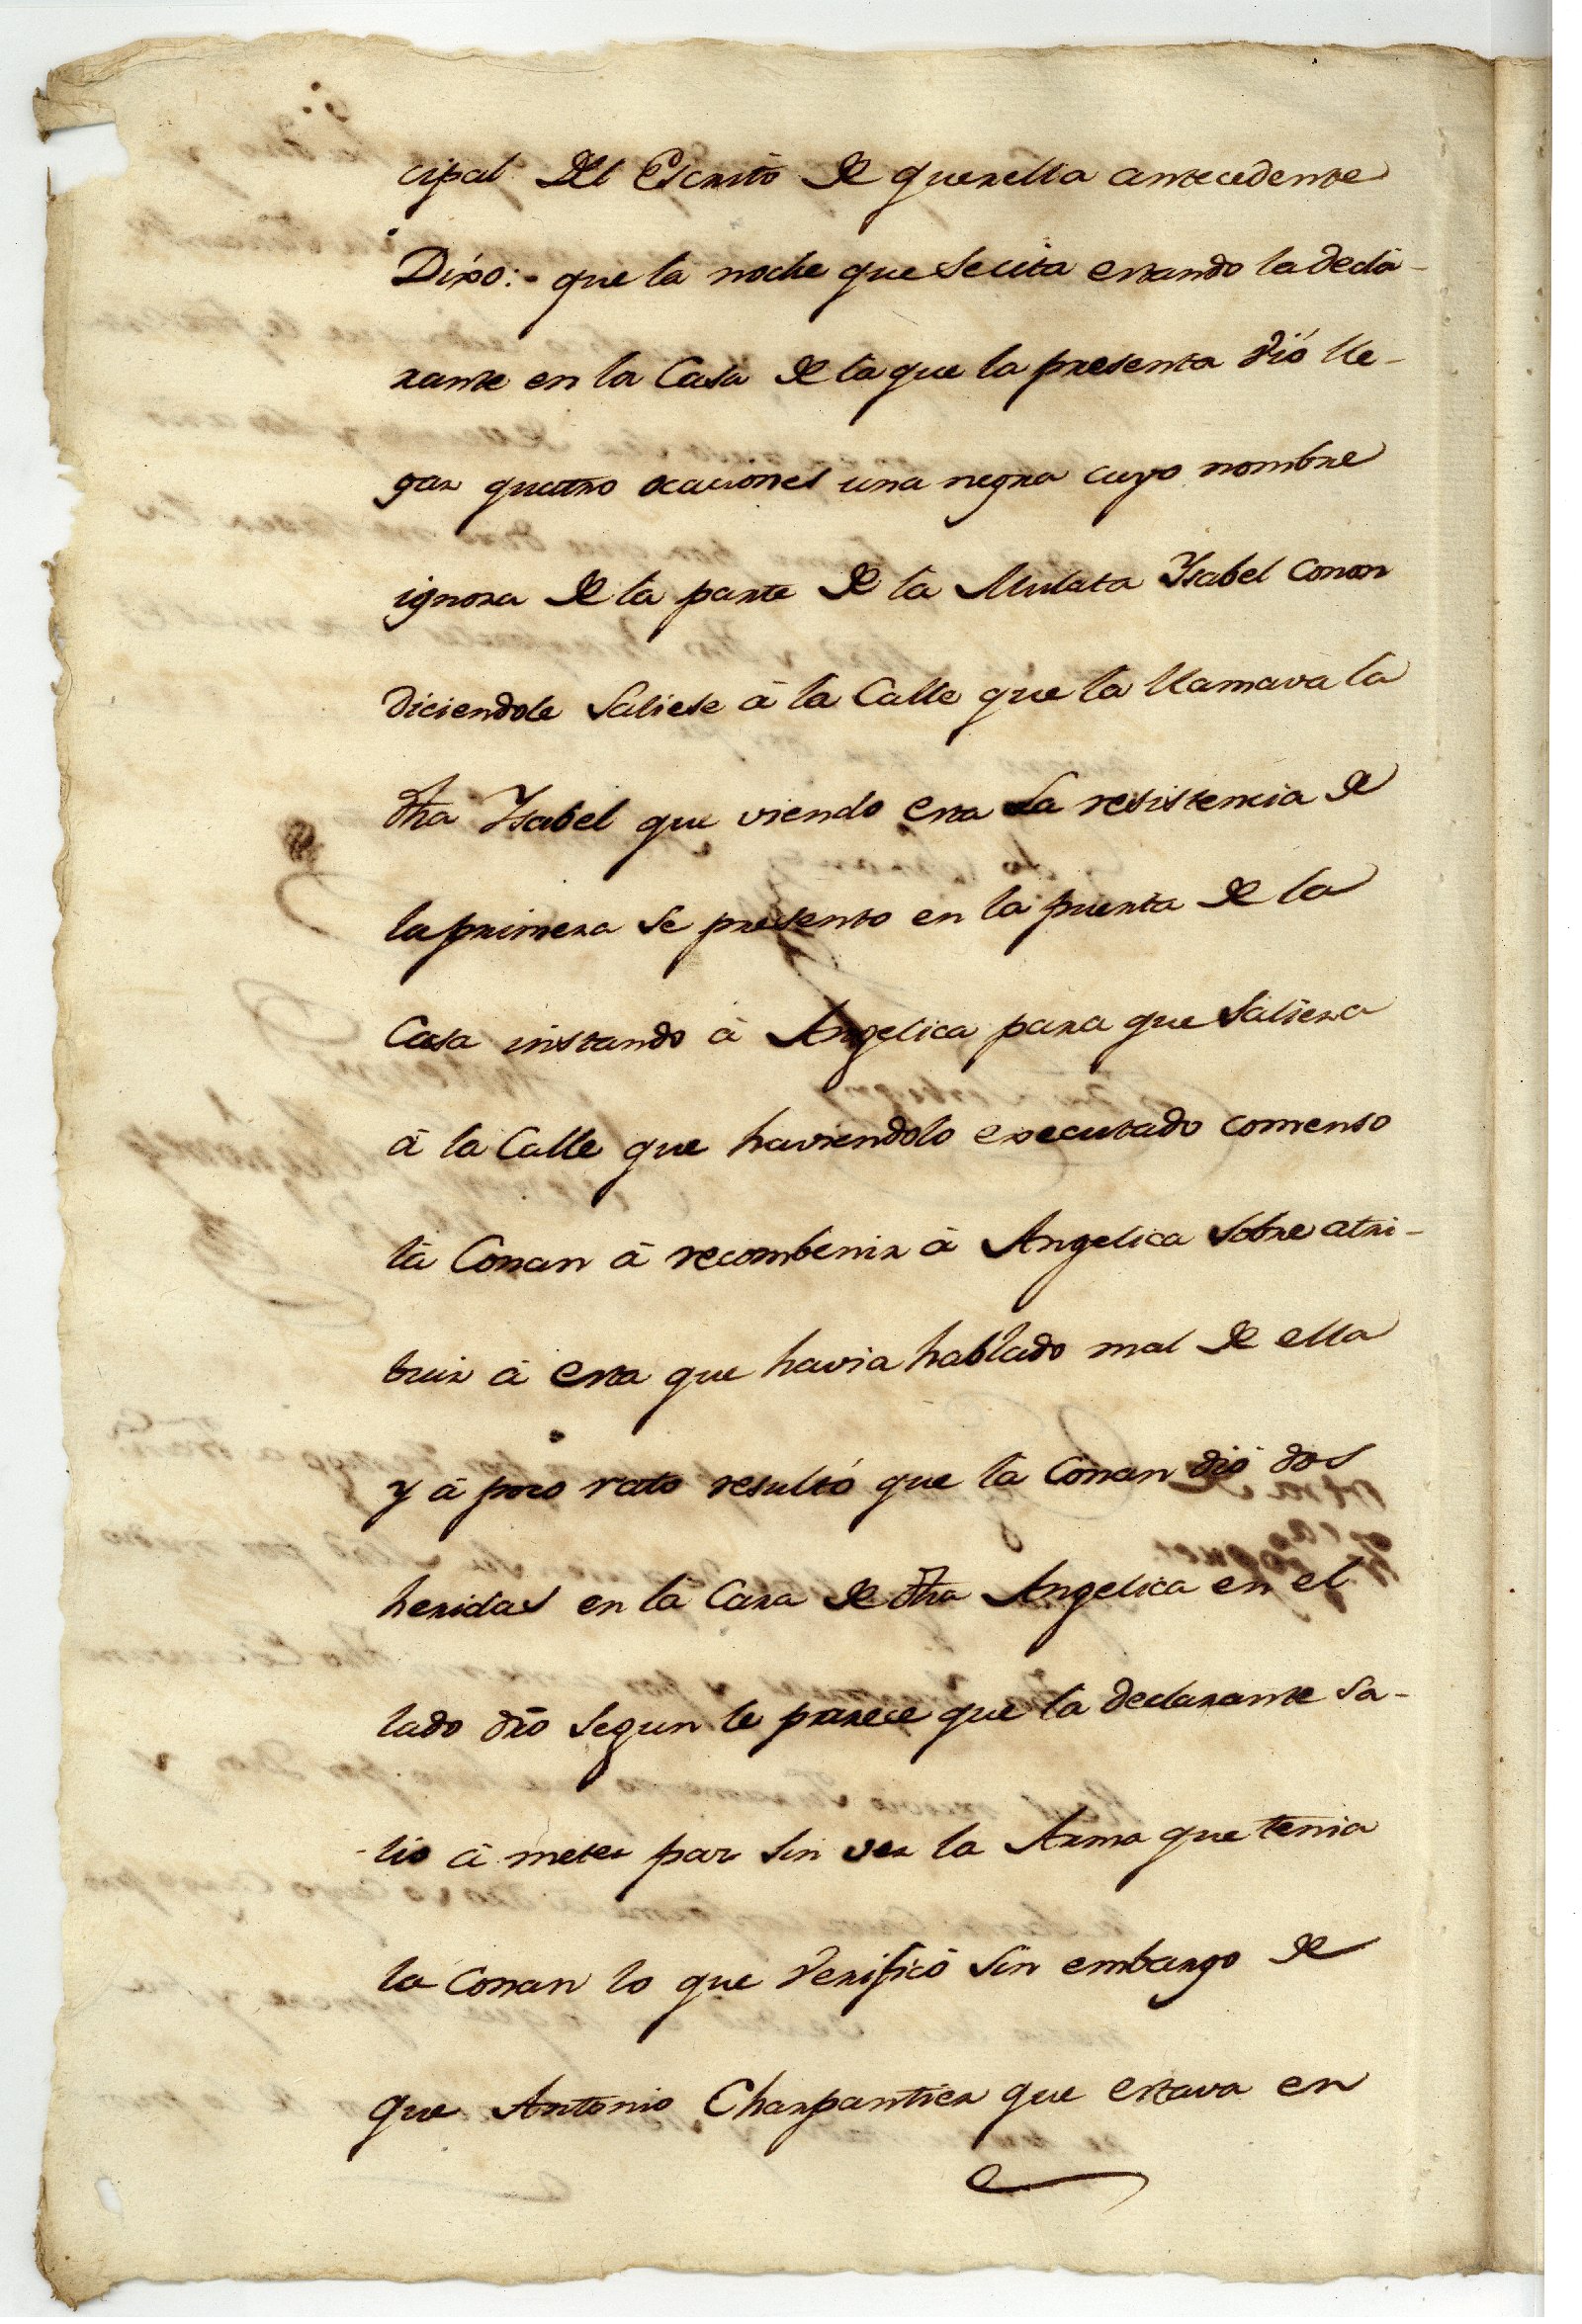 cipal del Escrito de querella antecedente
Dixo: que la noche que se cita estando la decla-
rante en la Casa de la que la presenta vió lle-
gar quatro ocaciones una negra cuyo nombre
ignora de la parte de la Mulata Ysabel Conan
diciendole Saliese à la Calle que la llamava la
dha Ysabel que viendo esta la resistencia de
la primera se presento en la puerta de la
Casa instando à Angelica para que Saliera
à la Calle que haviendolo executado comenso
la Conan à recombenir à Angelica Sobre atri-
buir à esta que havia hablado mal de ella
y à poco rato resultó que la Conan dió dos
heridas en la Cara de dha Angelica en el
lado dro Segun le parece que la declarante sa-
lio à meter paz Sin ver la Arma que tenia
la Conan lo que Verificó Sin embargo de
que Antonio Charpantier que estava en